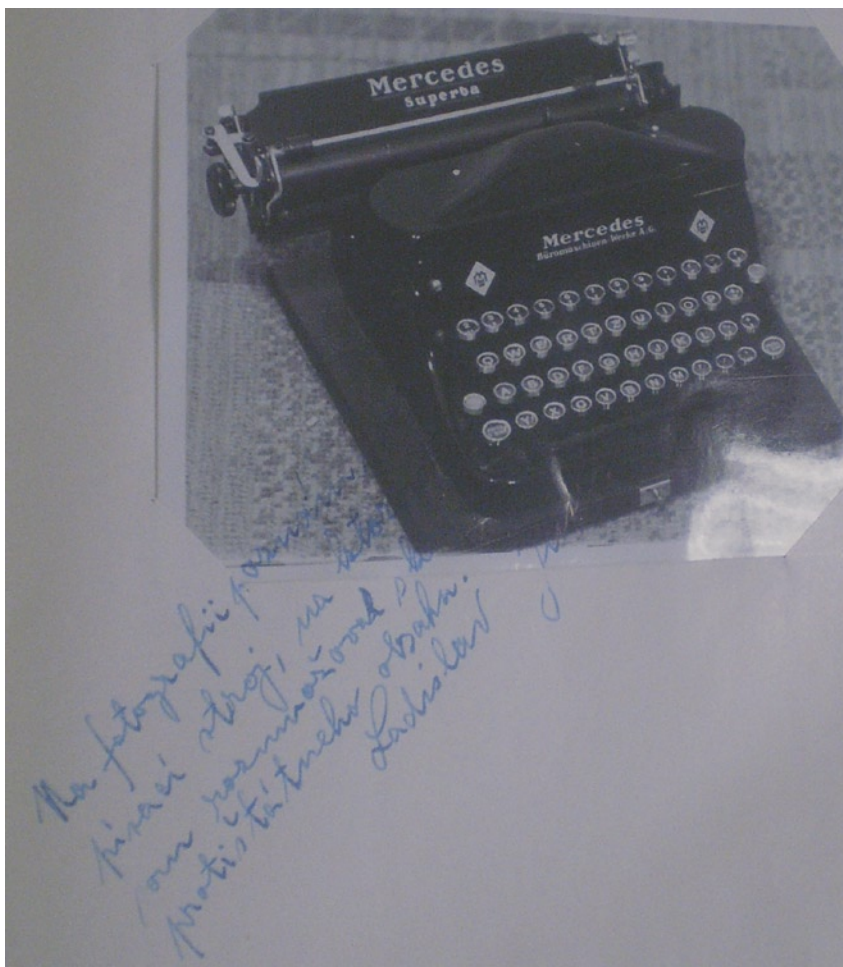 Mercedes
Superba
Mercedes
Büromaschinen-Werke A.G.
Na fotografii poznám
písací stroj, na
som rozmnožoval
protištátneho obsahu.
Ladislav